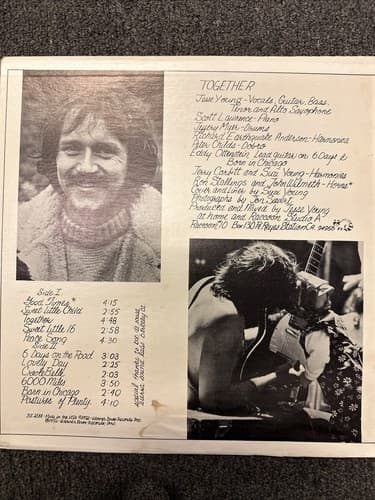 TOGETHER
Jesse Young - Vocals, Guitar, Bass,
Tenor and Alto Saxophone
Scott Lawrence - Piano
Jeffery Myer - Drums
Richard Earthquake Anderson - Harmonica
Peter Childs - Dobro
Eddy Ottenstein Lead guitar on 6 Days &
Born in Chicago
Jerry Corbitt and Suzi Young - Harmonies
Ron Stallings and John Wilmeth - Horns*
Cover and Liner by Suzi Young
Photographs by Jon Sievert
Produced and Mixed by Jesse Young
at home and Raccoon Studio A
Raccoon #10 Box 130 Pt. Reyes Station CA. 94956
Side I
Good Times* 4:15
Sweet little Child 2:55
Together 4:48
Sweet Little 16 2:58
Peace Song 4:30
Side II
6 Days on the Road 3:03
Lovely Day 2:25
Creole Belle 2:03
6000 Miles 3:50
Born in Chicago 2:40
Pastures of Plenty 4:10
special thanks to
BS 2588 - Made in the USA ©1972 - Warner Bros. Records Inc.
℗1972 - Warner Bros. Records Inc.